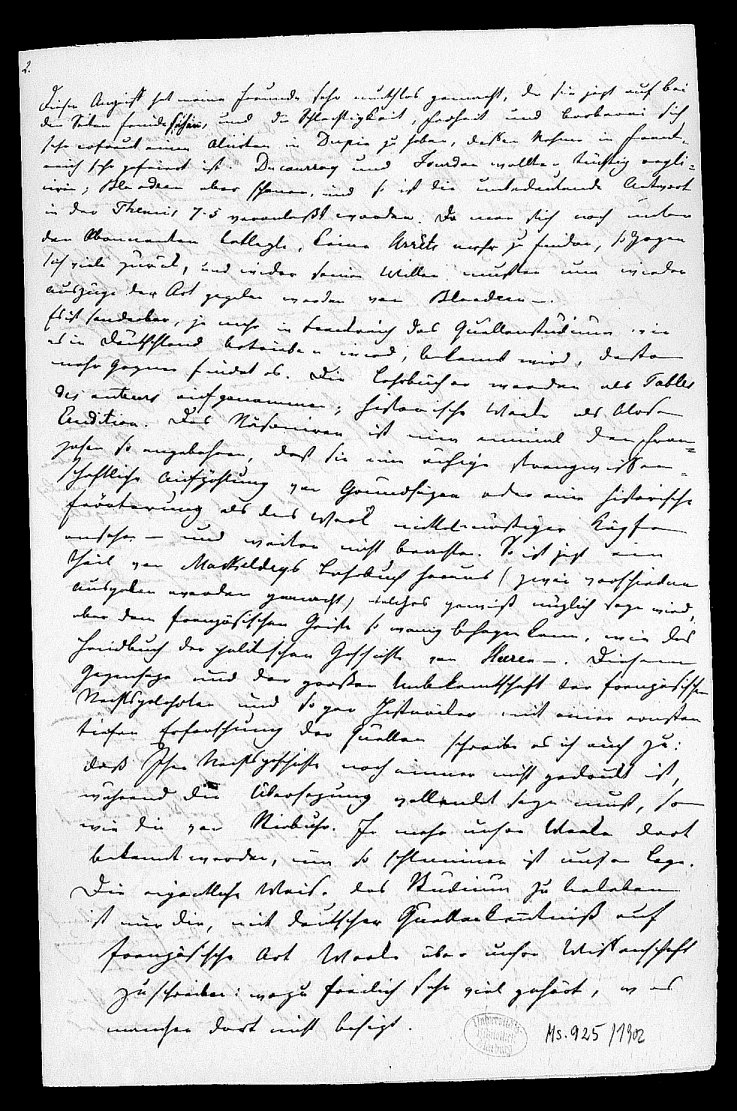 2.
Dieser Angriff hat meine Freunde sehr muthlos gemacht, da sie jetzt auf bei
den Seiten Feinde sehen, und die Schlechtigkeit, Frechheit und Barbarei sich
sehr erfreut einen Alliirten in Dupin zu haben, dessen Nahme in Frank-
reich sehr gefeiert ist. Ducaurroy und Jourdan wollten tüchtig repli-
ciren; Blondeau aber, und so ist die unbedeutende Antwort
in der Themis 7.5 veranlaßt worden. Da man sich noch unter
den Abonnenten beklagte, keine Arrêts mehr zu finden, so zogen
sich viele zurück, und wider seinen Willen mußten nun wieder
auszüge der Art gegeben werden von Blondeau –.
Es ist sonderbar, je mehr in Frankreich das Quellenstudium wie
es in Deutschland betrieben wird, bekannt wird, desto
mehr Gegner findet es. Die Lehrbücher werden als Tables
des auteurs aufgenommen; historische Werke als blose
Erudition. Das Räsoniren ist nun einmal den Fran-
zosen so angeboren, daß sie eine ruhige strengwissen-
schaftliche Aufzählung von Grundsätzen oder eine historische
Erörterung als das Werk mittelmäßiger Köpfe
ansehen – und weiter nicht beachten. So ist jetzt ein
Theil von Mackeldeys Lehrbuch heraus (zwei verschiedene
Ausgaben werden gemacht) welches gewiß nützlich seyn wird,
aber dem französischen Geiste so wenig behagen kann, wie das
Handbuch der politischen Geschichte von Heeren –. Diesem
Gegensatze und der großen Unbekanntschaft der französischen
Rechtsgelehrten und sogar Historiker mit einer ernsten
tiefen Erforschung der Quellen schreibe es ich auch zu:
daß Ihre Rechtsgeschichte noch immer nicht gedruckt ist,
während die Übersetzung vollendet seyn muß, so
wie die von Niebuhr. Je mehr unsre Werke dort
bekannt werden, um so schlimmer ist unsre Lage.
Die eigentliche Weise das Studium zu beleben
ist nur die, mit deutscher Quellenkenntniß auf
französische Art Werke über unsre Wissenschaft
zu schreiben: wozu freilich sehr viel gehört, was
mancher dort nicht besitzt.
Universitäts-
Bibliothek
Marburg
Ms. 925/1302